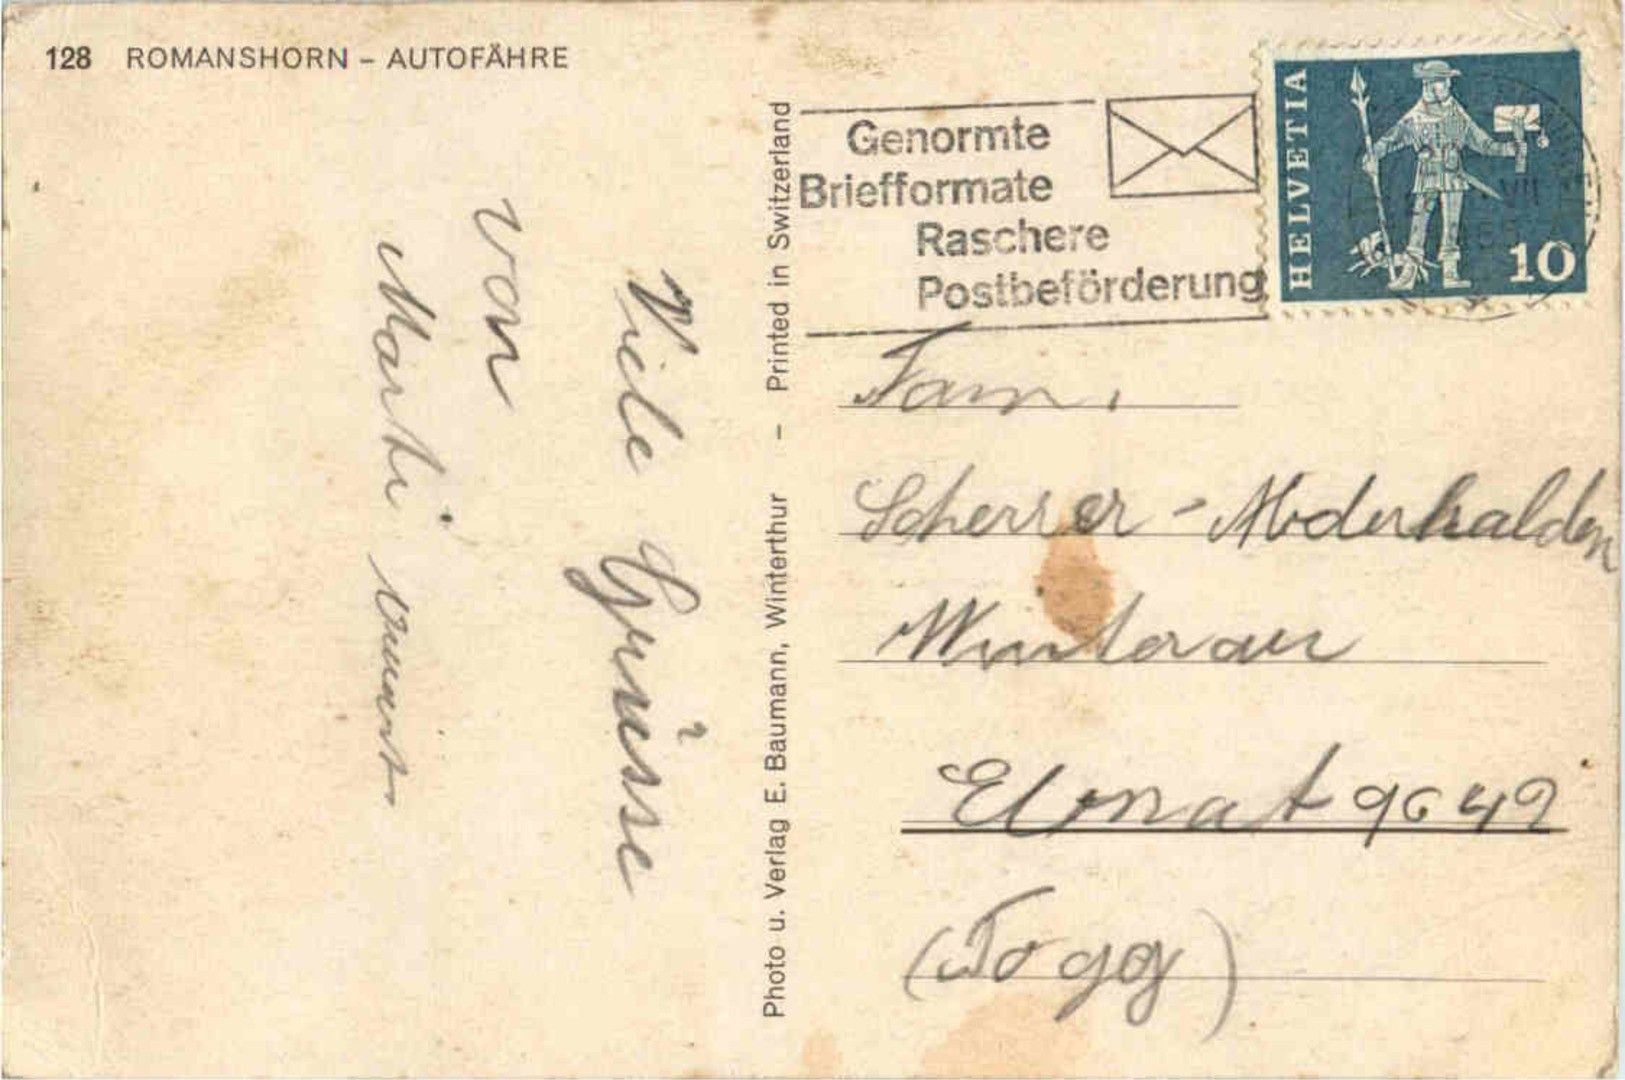 128 ROMANSHORN – AUTOFÄHRE
Viele Grüsse
von
Marti
Photo u. Verlag E. Baumann, Winterthur – Printed in Switzerland
Genormte
Briefformate
Raschere
Postbeförderung
HELVETIA
10
VII
Fam.
Scherrer - Abderhalden
Winterau
Ebnat 9642
(Togg)